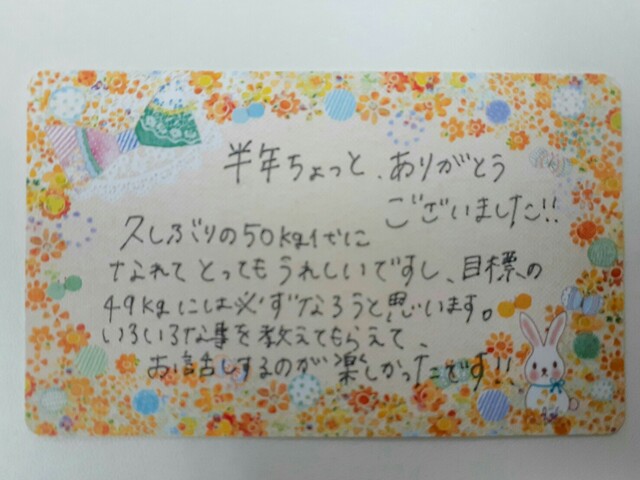 半年ちょっと、ありがとう
ございました!!
久しぶりの50kg代に
なれてとってもうれしいですし、目標の
49kgには必ずなろうと思います。
いろいろな事を教えてもらえて、
お話しするのが楽しかったです!!